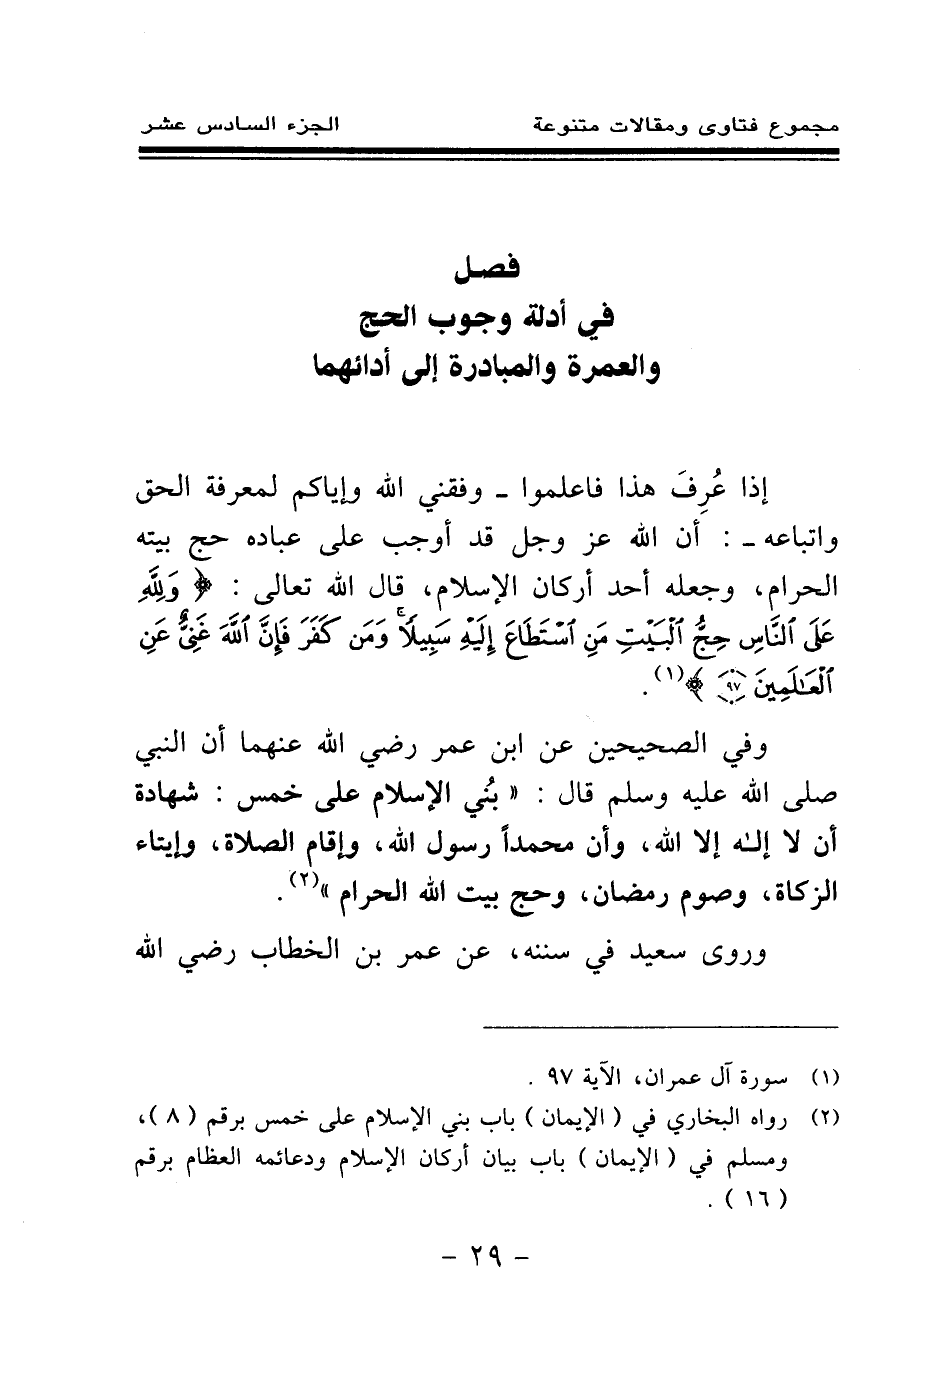 مجموع فتاوى ومقالات متنوعة الجزء السادس عشر
فصل
في أدلة وجوب الحج
والعمرة والمبادرة إلى أدائهما
إذا عُرِفَ هذا فاعلموا ـ وفقني الله وإياكم لمعرفة الحق
واتباعه ـ : أن الله عز وجل قد أوجب على عباده حج بيته
الحرام، وجعله أحد أركان الإسلام، قال الله تعالى : ﴿ وَلِلَّهِ
عَلَى ٱلنَّاسِ حِجُّ ٱلْبَيْتِ مَنِ ٱسْتَطَاعَ إِلَيْهِ سَبِيلًا ۚ وَمَن كَفَرَ فَإِنَّ ٱللَّهَ غَنِىٌّ عَنِ
ٱلْعَـٰلَمِينَ ٩٧ ﴾(١) .
وفي الصحيحين عن ابن عمر رضي الله عنهما أن النبي
صلى الله عليه وسلم قال : « بُني الإسلام على خمس : شهادة
أن لا إلـٰه إلا الله، وأن محمداً رسول الله، وإقام الصلاة، وإيتاء
الزكاة، وصوم رمضان، وحج بيت الله الحرام »(٢) .
وروى سعيد في سننه، عن عمر بن الخطاب رضي الله
(١) سورة آل عمران، الآية ٩٧ .
(٢) رواه البخاري في ( الإيمان ) باب بني الإسلام على خمس برقم ( ٨ )،
ومسلم في ( الإيمان ) باب بيان أركان الإسلام ودعائمه العظام برقم
( ١٦ ) .
- ٢٩ -